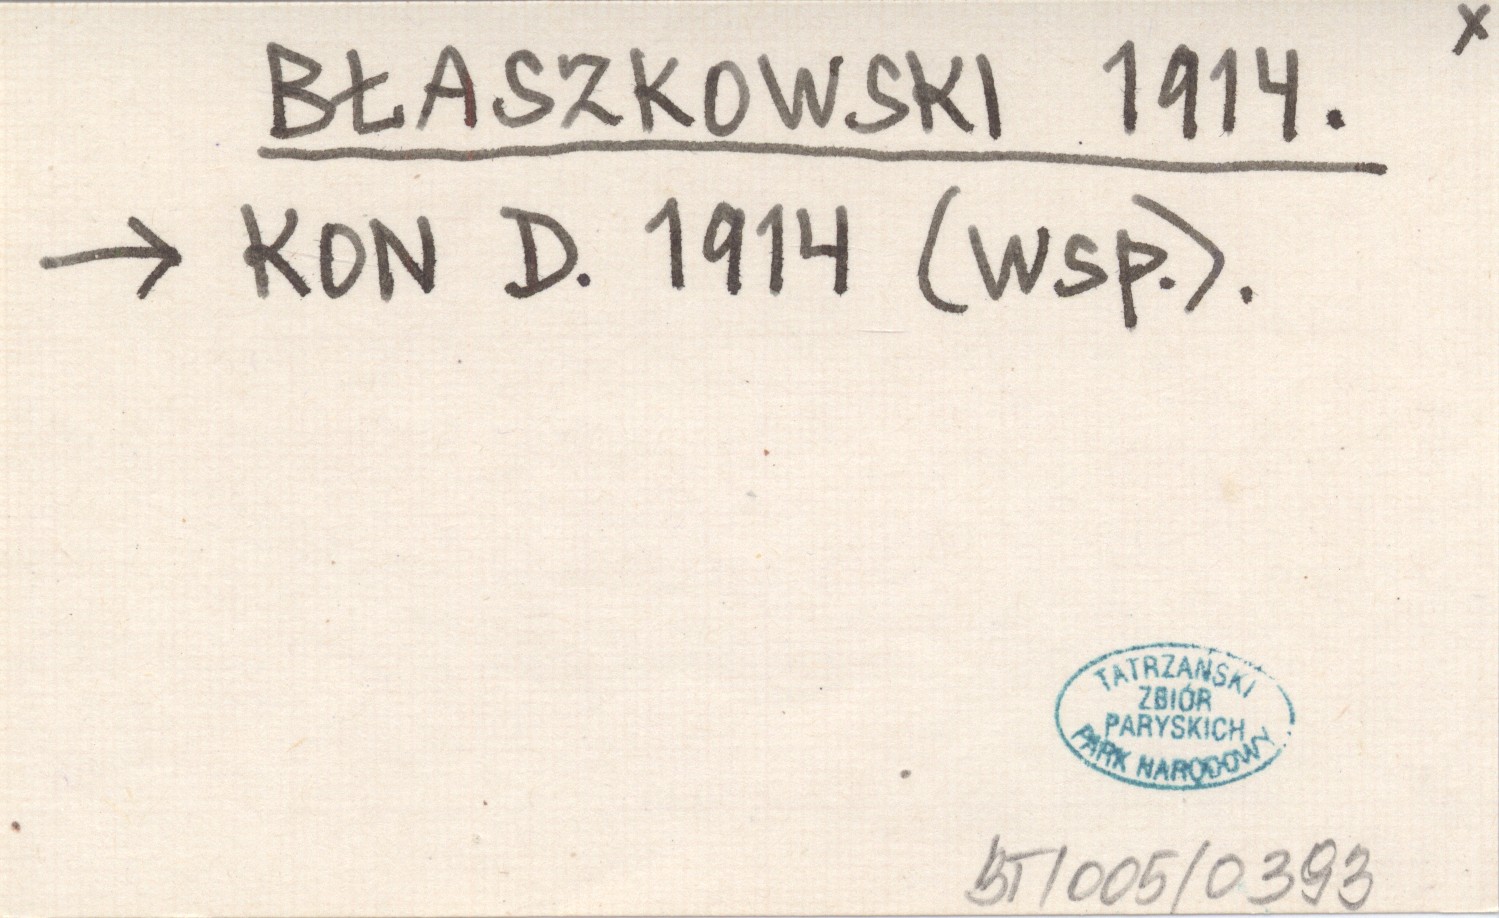 x
BŁASZKOWSKI 1914.
→ KON D. 1914 (wsp.).
TATRZAŃSKI
ZBIÓR
PARYSKICH
PARK NARODOWY
BT/005/0393